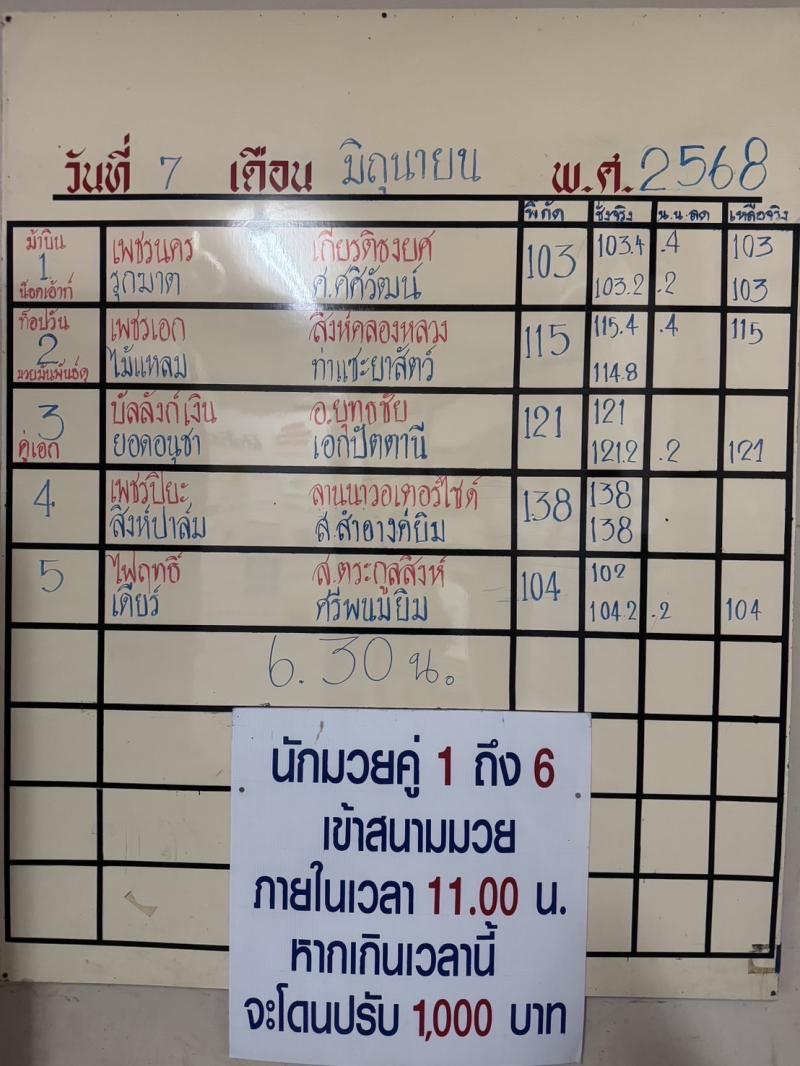 วันที่ 7 เดือน มิถุนายน พ.ศ. 2568
พิกัด ชั่งจริง น.น.ลด เหลือจริง
ม้าบิน
1
น็อคเอ้าท์
เพชรนคร เกียรติธงยศ 103 103.4 .4 103
รุกฆาต ศ.ศศิวัฒน์ 103.2 .2 103
ท็อปวัน
2
มวยมันพันธุ์ดุ
เพชรเอก สิงห์คลองหลวง 115 115.4 .4 115
ไม้แหลม ท่าแซะยาสัตว์ 114.8
3
คู่เอก
บัลลังก์เงิน อ.ยุทธชัย 121 121
ยอดอนุชา เอกปัตตานี 121.2 .2 121
4
เพชรปิยะ ลานนาวอเตอร์ไซด์ 138 138
สิงห์ปาล์ม ส.สำอางค์ยิม 138
5
ไฟฤทธิ์ ส.ตระกูลสิงห์ 104 102
เดียร์ ศรีพนมยิม 104.2 .2 104
6.30 น.
นักมวยคู่ 1 ถึง 6
เข้าสนามมวย
ภายในเวลา 11.00 น.
หากเกินเวลานี้
จะโดนปรับ 1,000 บาท